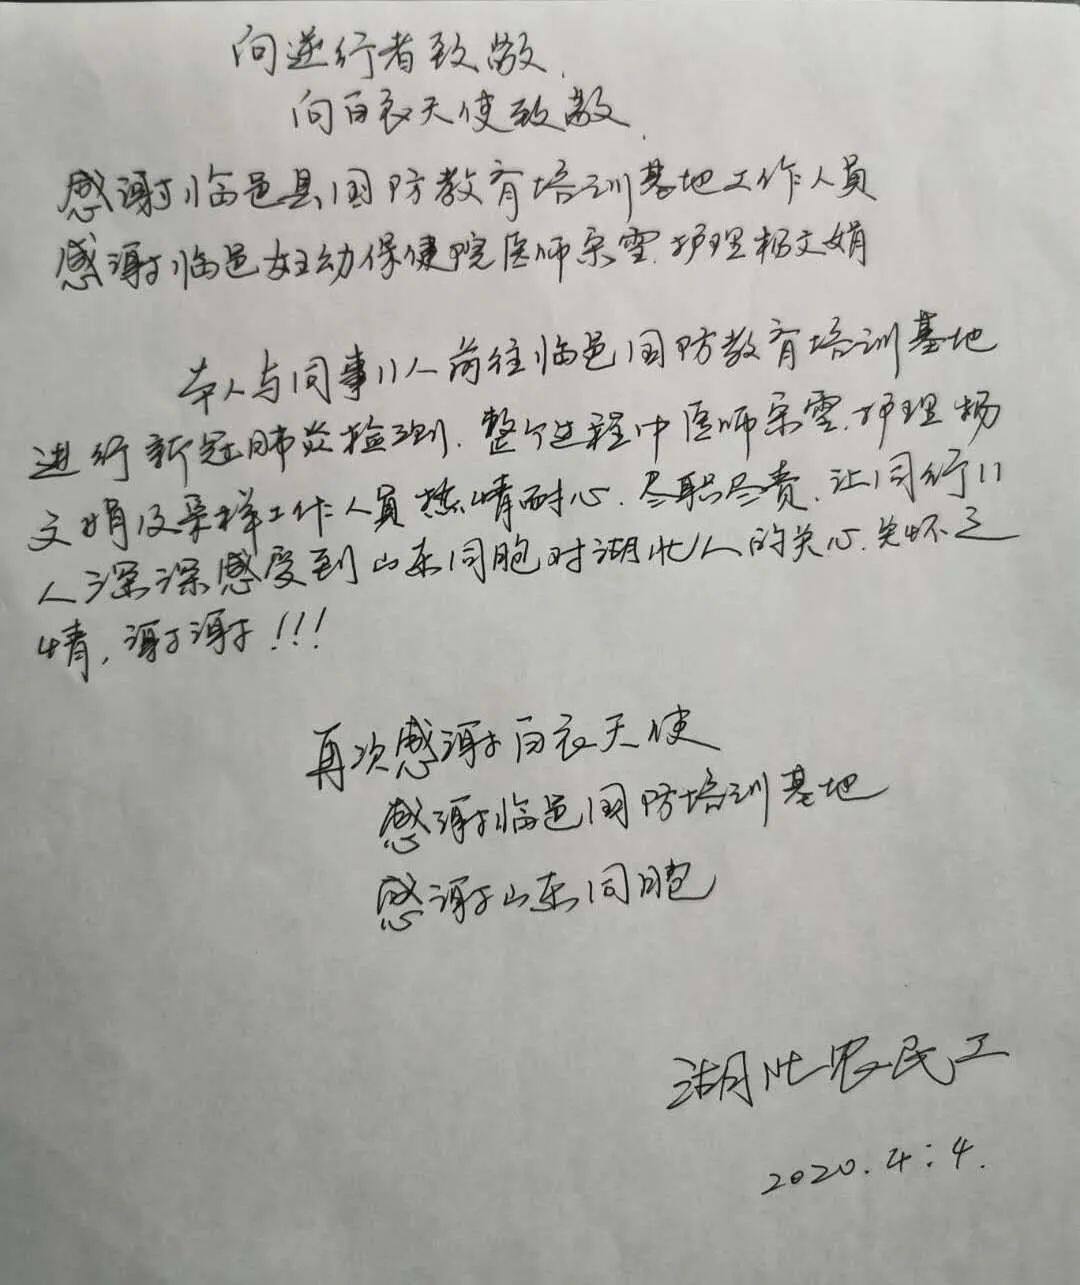 向逆行者致敬.
向白衣天使致敬.
感谢临邑县国防教育培训基地工作人员
感谢临邑妇幼保健院医师宋雪.护理杨文娟
本人与同事11人前往临邑国防教育培训基地
进行新冠肺炎检测.整个过程中医师宋雪.护理杨
文娟及采样工作人员热情耐心.尽职尽责.让同行11
人深深感受到山东同胞对湖北人的关心.关怀之
情,谢谢!!!
再次感谢白衣天使
感谢临邑国防培训基地
感谢山东同胞
湖北农民工
2020.4:4.